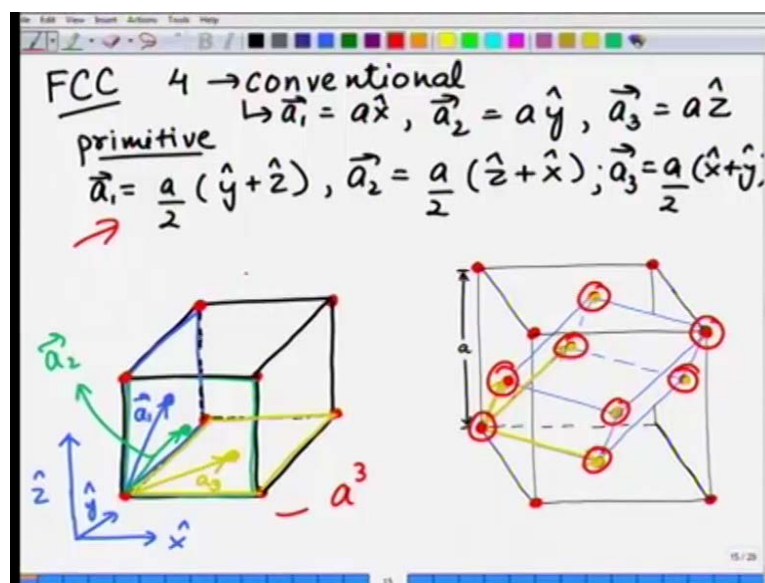 File Edit View Insert Actions Tools Help
FCC 4 → conventional
↳ a⃗₁ = a x̂ , a⃗₂ = a ŷ , a⃗₃ = a ẑ
primitive
a⃗₁ = a/2 ( ŷ + ẑ ) , a⃗₂ = a/2 ( ẑ + x̂ ) ; a⃗₃ = a/2 ( x̂ + ŷ )
a⃗₂
a⃗₁
a₃
ẑ
ŷ
x̂
a³
a
15 / 29
15